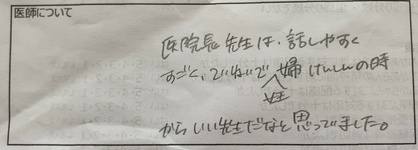 医師について
医院長先生は、話しやすく
すごく、ていねいで婦けんしんの時
妊
からいい先生だなと思ってました。